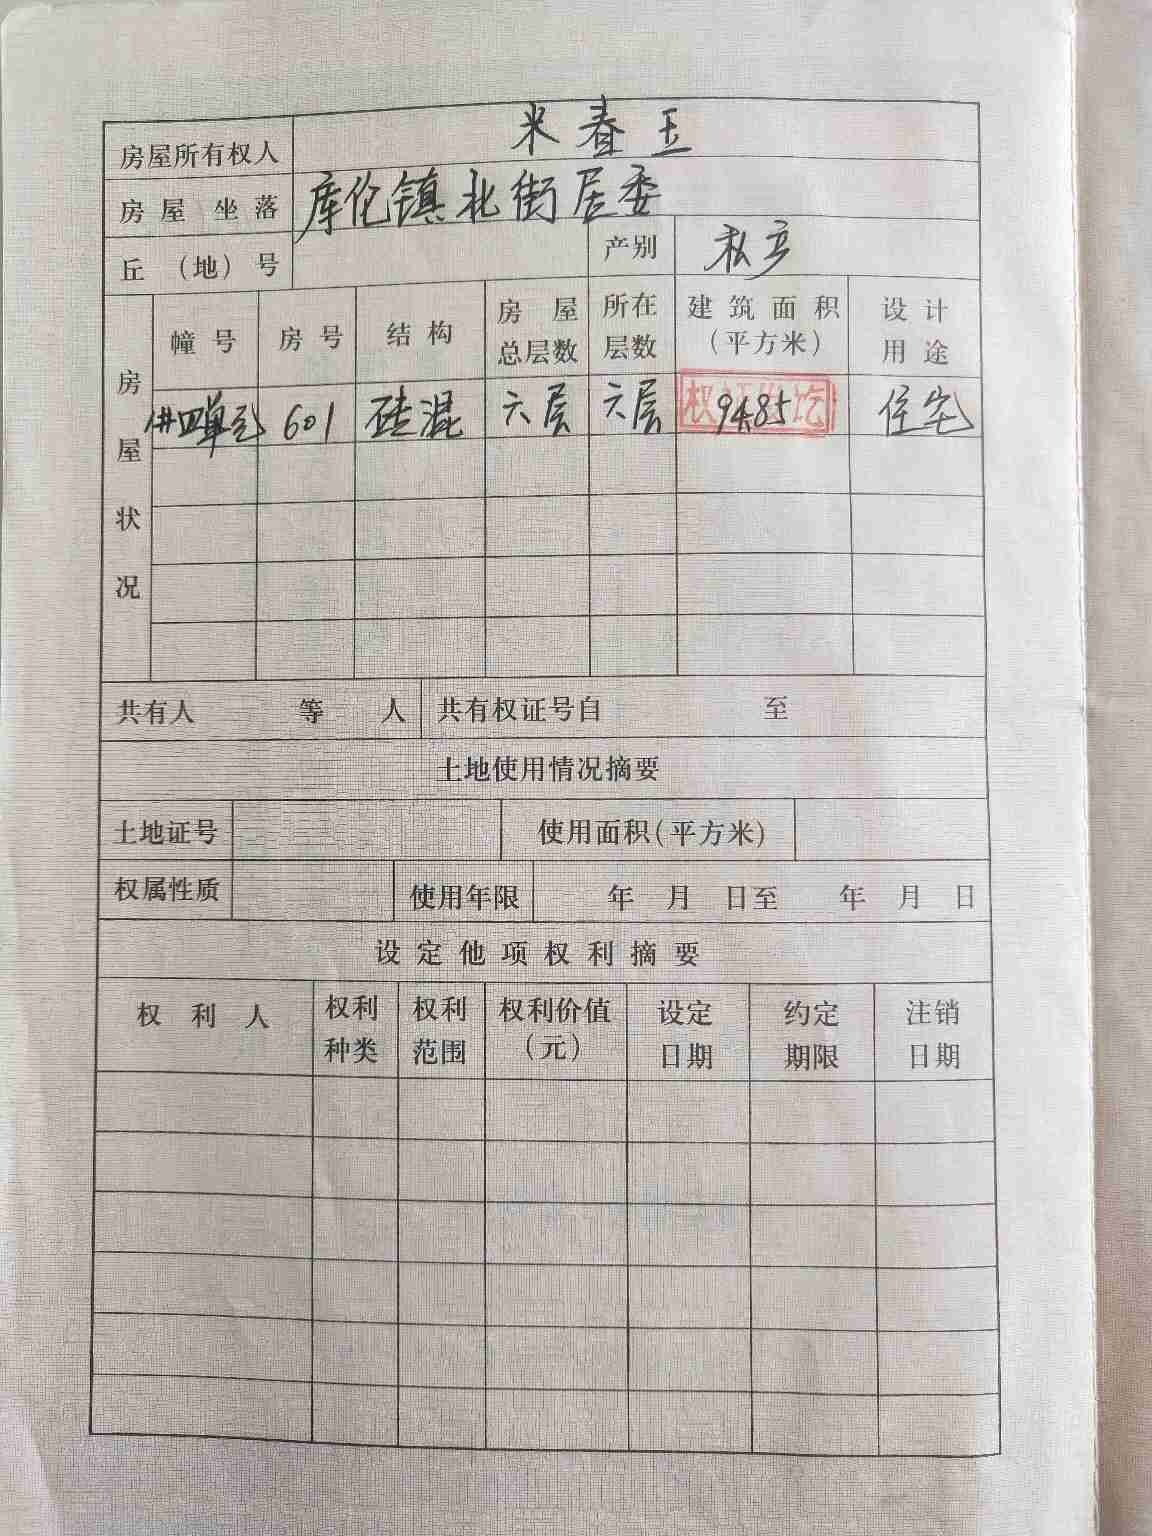 房屋所有权人 米春玉
房屋坐落 库伦镇北街居委
丘（地）号 产别 私产
房屋状况 幢号 房号 结构 房屋总层数 所在层数 建筑面积（平方米） 设计用途
四单元 601 砖混 六层 六层 94.85 住宅
共有人 等 人 共有权证号自 至
土地使用情况摘要
土地证号 使用面积(平方米)
权属性质 使用年限 年 月 日至 年 月 日
设定他项权利摘要
权利人 权利种类 权利范围 权利价值（元） 设定日期 约定期限 注销日期